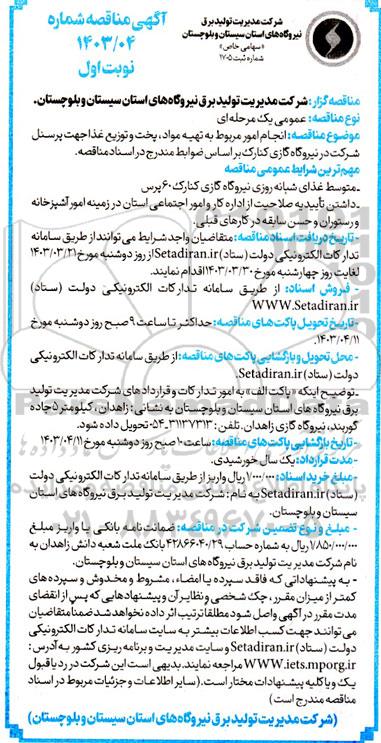 شرکت مدیریت تولید برق
نیروگاه‌های استان سیستان و بلوچستان
«سهامی خاص»
شماره ثبت ۱۷۰۵
آگهی مناقصه شماره
۱۴۰۳/۰۴
نوبت اول
مناقصه گزار: شرکت مدیریت تولید برق نیروگاه‌های استان سیستان و بلوچستان.
نوع مناقصه: عمومی یک مرحله ای
موضوع مناقصه: انجام امور مربوط به تهیه مواد، پخت و توزیع غذا جهت پرسنل
شرکت در نیروگاه گازی کنارک بر اساس ضوابط مندرج در اسناد مناقصه.
مهم‌ترین شرایط عمومی مناقصه
-متوسط غذای شبانه روزی نیروگاه گازی کنارک ۶۰ پرس
-داشتن تأییدیه صلاحیت از اداره کار و امور اجتماعی استان در زمینه امور آشپزخانه
و رستوران و حسن سابقه در کارهای قبلی.
-تاریخ دریافت اسناد مناقصه: متقاضیان واجد شرایط می‌توانند از طریق سامانه
تدارکات الکترونیکی دولت (ستاد) Setadiran.ir از روز دوشنبه مورخ ۱۴۰۳/۰۳/۲۱
لغایت روز چهارشنبه مورخ ۱۴۰۳/۰۳/۳۰ اقدام نمایند.
- فروش اسناد: از طریق سامانه تدارکات الکترونیکی دولت (ستاد)
WWW.Setadiran.ir
-تاریخ تحویل پاکت های مناقصه: حداکثر تا ساعت ۹ صبح روز دوشنبه مورخ
۱۴۰۳/۰۴/۱۱.
-محل تحویل و بازگشایی پاکت های مناقصه: از طریق سامانه تدارکات الکترونیکی
دولت (ستاد) Setadiran.ir.
-توضیح اینکه «پاکت الف» به امور تدارکات و قراردادهای شرکت مدیریت تولید
برق نیروگاه های استان سیستان و بلوچستان به نشانی: زاهدان، کیلومتر ۵ جاده
گوربند، نیروگاه گازی زاهدان، تلفن: ۳۱۱۳۷۳۱۳-۰۵۴ تحویل داده شود.
-تاریخ بازگشایی پاکت های مناقصه: ساعت ۱۰ صبح روز دوشنبه مورخ ۱۴۰۳/۰۴/۱۱
-مدت قرارداد: یک سال خورشیدی.
-مبلغ خرید اسناد: ۷۰۰/۰۰۰ ریال واریز از طریق سامانه تدارکات الکترونیکی دولت
(ستاد) Setadiran.ir به نام: شرکت مدیریت تولید برق نیروگاه های استان
سیستان و بلوچستان.
- مبلغ و نوع تضمین شرکت در مناقصه: ضمانت نامه بانکی یا واریز مبلغ
۱/۷۸۵۰/۰۰۰/۰۰۰ ریال به شماره حساب ۴۲۸۶۶۰۴۰/۲۹ بانک ملت شعبه دانش زاهدان به
نام شرکت مدیریت تولید برق نیروگاه های استان سیستان و بلوچستان.
- به پیشنهاداتی که فاقد سپرده یا امضاء، مشروط و مخدوش و سپرده های
کمتر از میزان مقرر، چک شخصی و نظایر آن و پیشنهادهایی که پس از انقضای
مدت مقرر در آگهی واصل شود مطلقا ترتیب اثر داده نخواهد شد ضمنا متقاضیان
می توانند جهت کسب اطلاعات بیشتر به سایت سامانه تدارکات الکترونیکی
دولت (ستاد) Setadiran.ir و سایت مدیریت و برنامه ریزی کشور به آدرس:
WWW.iets.mporg.ir مراجعه نمایند. بدیهی است این شرکت در رد یا قبول
یک و یا کلیه پیشنهادات مختار است. (سایر اطلاعات و جزئیات مربوط در اسناد
مناقصه مندرج است)
(شرکت مدیریت تولید برق نیروگاه های استان سیستان و بلوچستان)